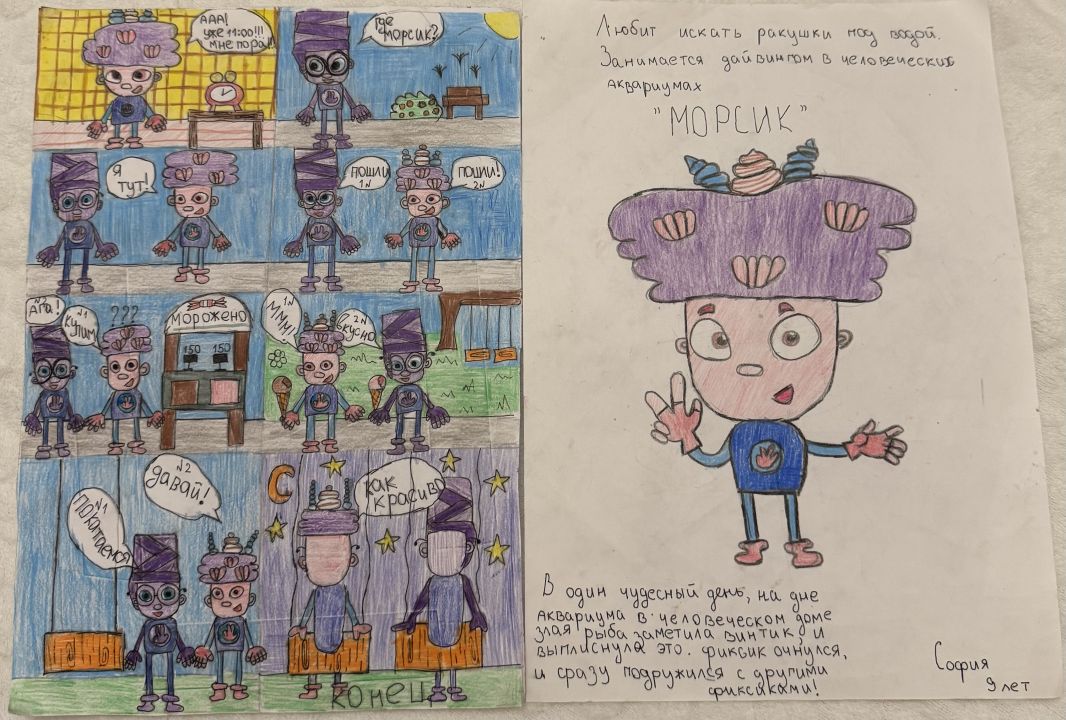 ААА!
уже 11:00!!!
мне пора!!
где
морсик?
Я
ТУТ!
ПОШЛИ
1№
ПОШЛИ!
2№
№2
АГА!
№1
КУПИМ
???
МОРОЖЕНО
150 150
1№
МММ!
2№
Вкусно
№1
ПОКАТАЕМСЯ
№2
ДАВАЙ!
как
красиво
конец
Любит искать ракушки под водой.
Занимается дайвингом в человеческих
аквариумах
"МОРСИК"
В один чудесный день, на дне
аквариума в человеческом доме
злая рыба заметила винтик, и
выплиснула это. фиксик очнулся,
и сразу подружился с другими
фиксиками!
София
9 лет